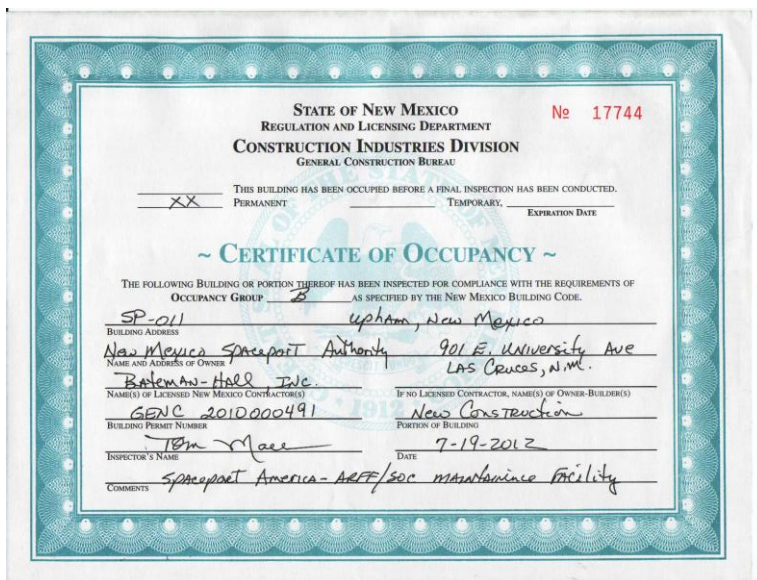 STATE OF NEW MEXICO
REGULATION AND LICENSING DEPARTMENT
№ 17744
CONSTRUCTION INDUSTRIES DIVISION
GENERAL CONSTRUCTION BUREAU
THIS BUILDING HAS BEEN OCCUPIED BEFORE A FINAL INSPECTION HAS BEEN CONDUCTED.
XX PERMANENT TEMPORARY,
EXPIRATION DATE
~ CERTIFICATE OF OCCUPANCY ~
THE FOLLOWING BUILDING OR PORTION THEREOF HAS BEEN INSPECTED FOR COMPLIANCE WITH THE REQUIREMENTS OF
OCCUPANCY GROUP B AS SPECIFIED BY THE NEW MEXICO BUILDING CODE.
SP-011 Upham, New Mexico
BUILDING ADDRESS
New Mexico Spaceport Authority 901 E. University Ave
NAME AND ADDRESS OF OWNER LAS CRUCES, N.M.
BATEMAN-HALL, INC.
NAME(S) OF LICENSED NEW MEXICO CONTRACTOR(S) IF NO LICENSED CONTRACTOR, NAME(S) OF OWNER-BUILDER(S)
GENC 2010000491 New Construction
BUILDING PERMIT NUMBER PORTION OF BUILDING
Tom Mace 7-19-2012
INSPECTOR'S NAME DATE
COMMENTS Spaceport America - ARFF/SOC maintainince Facility
1912